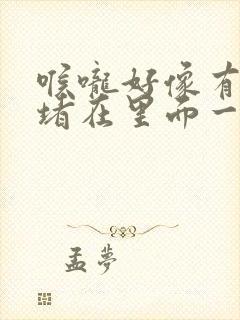 喉咙好像有
堵在里面一
孟梦